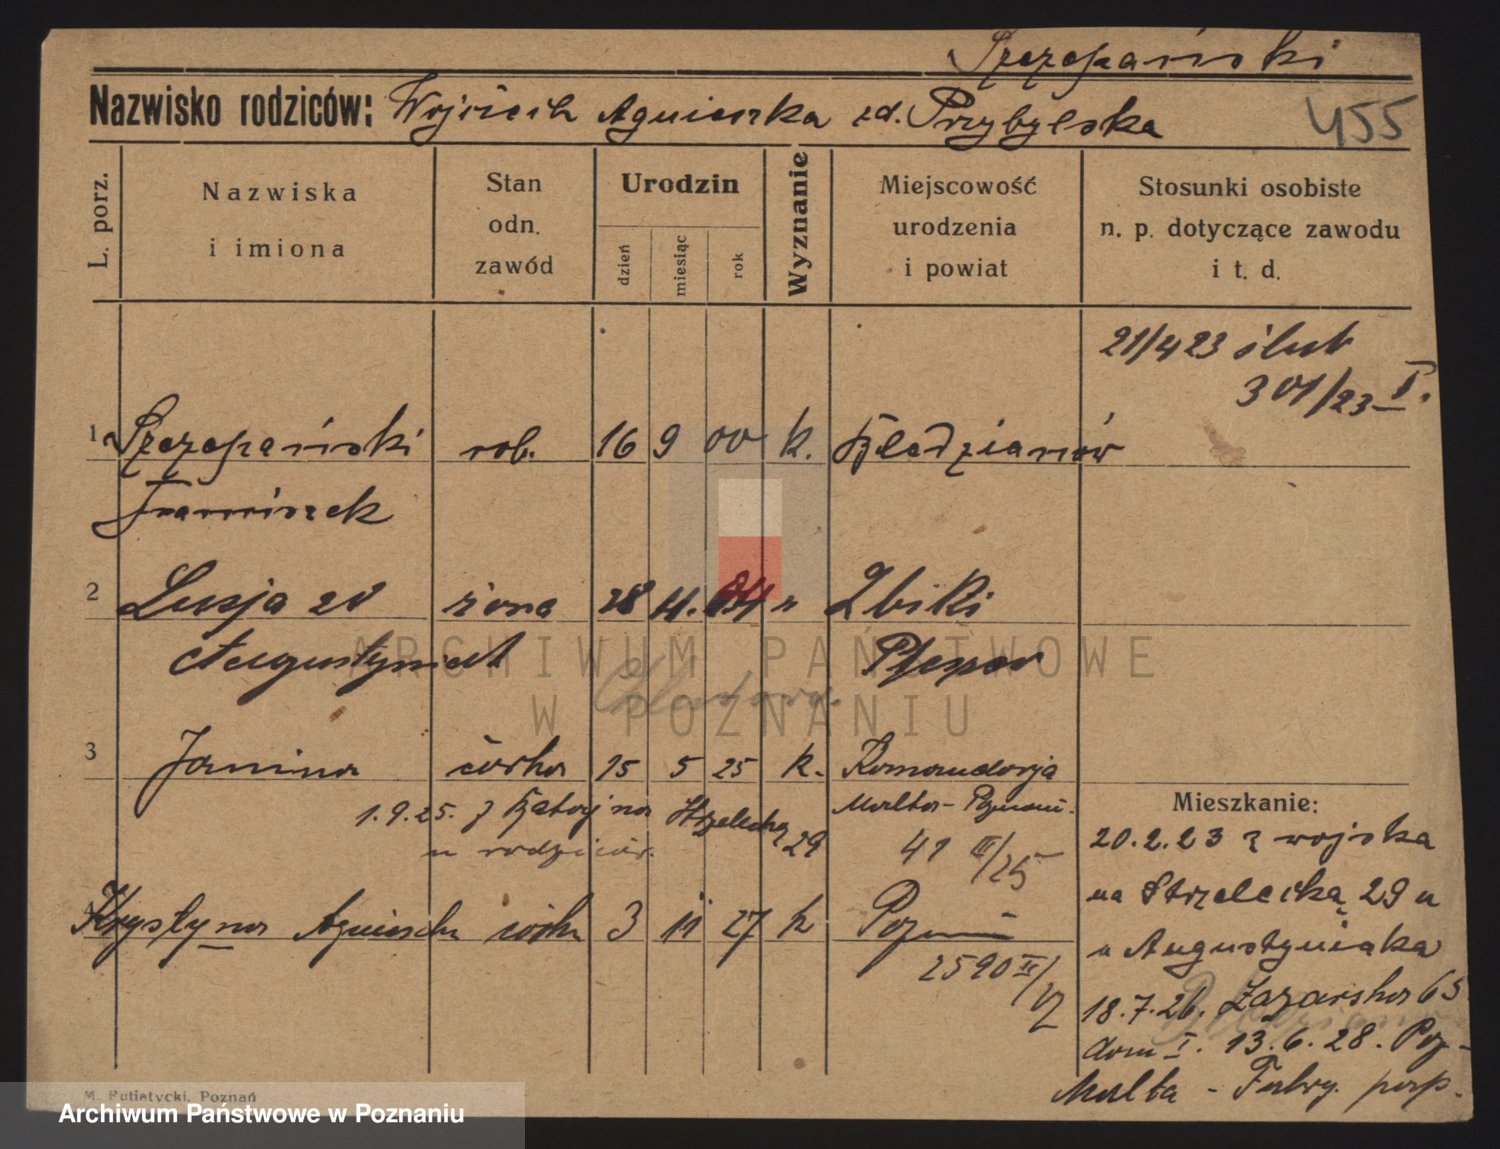 Szczepański
Nazwisko rodziców: Wojciech Agnieszka zd. Przybylska
455
L. porz.
Nazwiska
i imiona
Stan
odn.
zawód
Urodzin
dzień
miesiąc
rok
Wyznanie
Miejscowość
urodzenia
i powiat
Stosunki osobiste
n. p. dotyczące zawodu
i t. d.
21/4 23 ślub
301/23 I.
1 Szczepański rob. 16 9 00 k. Kledzianów
Franciszek
2 Łucja zd żona 28 11. 04 Zbiki
Augustyniak
ARCHIWUM PAŃSTWOWE
W POZNANIU
3 Janina córka 15 5 25 k. Komandorja
Malta - Poznań.
1.9.25. z Strzelecka 29
u rodziców.
41 III/25
Mieszkanie:
20.2.23 z wojska
na Strzelecką 29 u
u Augustyniaka
Krystyna Agnieszka córka 3 11 27 k Poznań
2590 II/27
18.7.26. 65
dom I. 13.6.28. Poz-
Malta -
M. Putiatycki, Poznań
Archiwum Państwowe w Poznaniu